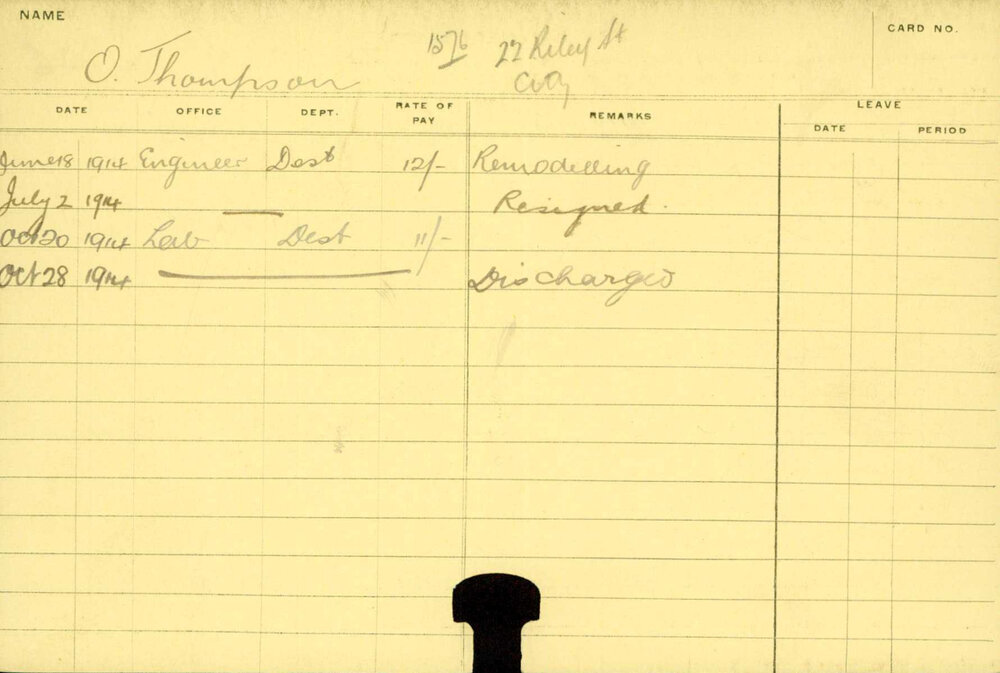 NAME
CARD NO.
O. Thompson 1576 27 Riley St
City
DATE OFFICE DEPT. RATE OF PAY REMARKS LEAVE
DATE PERIOD
June 18 1914 Engineer Dest 12/- Remodelling
July 2 1914 Resigned.
Oct 20 1914 Lab Dest 11/-
Oct 28 1914 Discharged